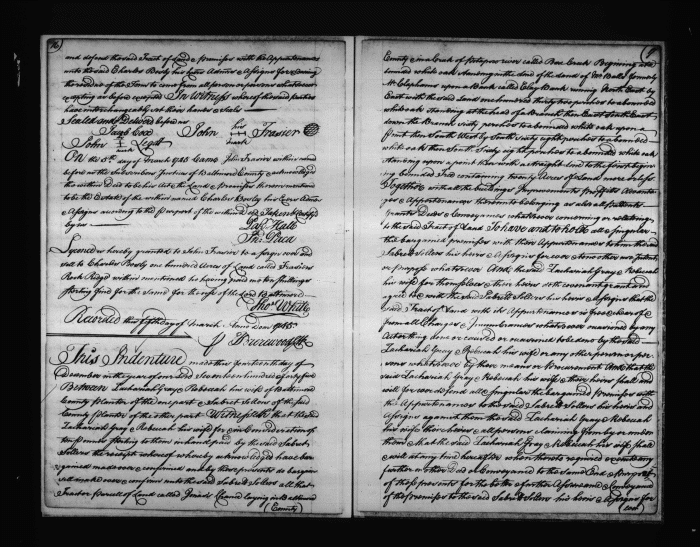 96)
and defend the said Tract of Land & Premisses with the Appurtenances
unto the said Charles Bosly his heirs Admrs & Assigns for & during
the residue of the Term to come from all person or persons whatsoever
excepting as before excepted In Witness whereof the said parties
have interchangeably set their hands & Seals
Sealed and Deliver'd before us
Jacob Cox John his Frasier
John Legatt mark
mark
On the 5th day of March 1745 Came John Frasier within named
before us the Subscribers Justices of Baltimore County & acknowledged
the within Deed to be his Act & the Land & Premises therein mentioned
to be the Estate of the within named Charles Bosly his Exrs Admrs
& Assigns according to the Purport of the within Deed Taken & Certifyd
by us
Hall
Jno: Paca
Lycence is hereby granted to John Frasier to
sell to Charles Bosly one hundred Acres of Land called Frasiers
Rock Ridge within mentioned he having paid me four Shillings
sterling fine for the same for the use of the Lord Baltimore
Thos White
Recorded this fifth day of March Anno Dom 1745
This Indenture made this fourteenth day of
December in the year of our Lord Seventeen hundred & forty five
Between Zachariah Gray & Rebeccah his wife of Baltimore
County Planter of the one part & Sabret Sollers of the said
County Planter of the other part Witnesseth that the said
Zachariah Gray & Rebeccah his wife for & in Consideration of
ten Pounds sterling to them in hand paid by the said Sabret
Sollers the receipt whereof whereby acknowledged have bar-
gained made over & confirmed and by these presents do bargain
sell make over & confirm unto the said Sabret Sollers all that
Tract or Parcell of Land called laying in Baltimore
(County)
County in a Creek of Patapsco river called Bear Creek Beginning at a
bounded white oak standing in the line of the lands of formerly
upon a Bank called Clay Bank running North East by
East with the said Land one hundred thirty two perches to a bounded
white oak standing at the head of a branch then East South East
down the Branch with perches to a bounded white oak upon a
Point then South West by South sixty eight perches to a bounded
white oak then South sixty six perches to a bounded white oak
standing upon a point then with a straight line to the first begin-
ing bounded Tree containing twenty Acres of Land more or less
Together with all the buildings Improvements profitts Advanta-
ges & Appurtenances thereunto belonging as also all patents
grants Deeds & Conveyances whatsoever concerning or relating
to the said Tract of Land To have and to hold all & singular
the bargained premisses with their Appurtenances to him the said
Sabret Sollers his heirs & Assigns for ever & to no other use Intent
or purpose whatsoever And the said Zachariah Gray & Rebecah
his wife for themselves & their heirs doth covenant grant and
agree to & with the said Sabret Sollers his heirs & Assigns that the
said Tract of Land with its Appurtenances is free & clear of &
from all Charges & Incumbrances whatsoever occasioned by any
Act or thing done or caused or occasioned to be done by the said
Zachariah Gray & Rebeccah his wife or any other person or per-
sons whatsoever by their means or Procurement And that the
said Zachariah Gray & Rebecah his wife & their heirs shall and
will for ever defend all & singular the bargained Premisses with
the Appurtenances to the said Sabret Sollers his heirs and
Assigns against them the said Zachariah Gray & Rebecah
his wife their heirs & all persons claiming from by or under
them & that the said Zachariah Gray & Rebecah his wife shall
& will at any time hereafter when thereto required execute any
further or other Deed or Conveyance to the same End & Purport
of these presents for the better & further Assurance & Conveyance
of the premisses to the said Sabret Sollers his heirs & Assigns for